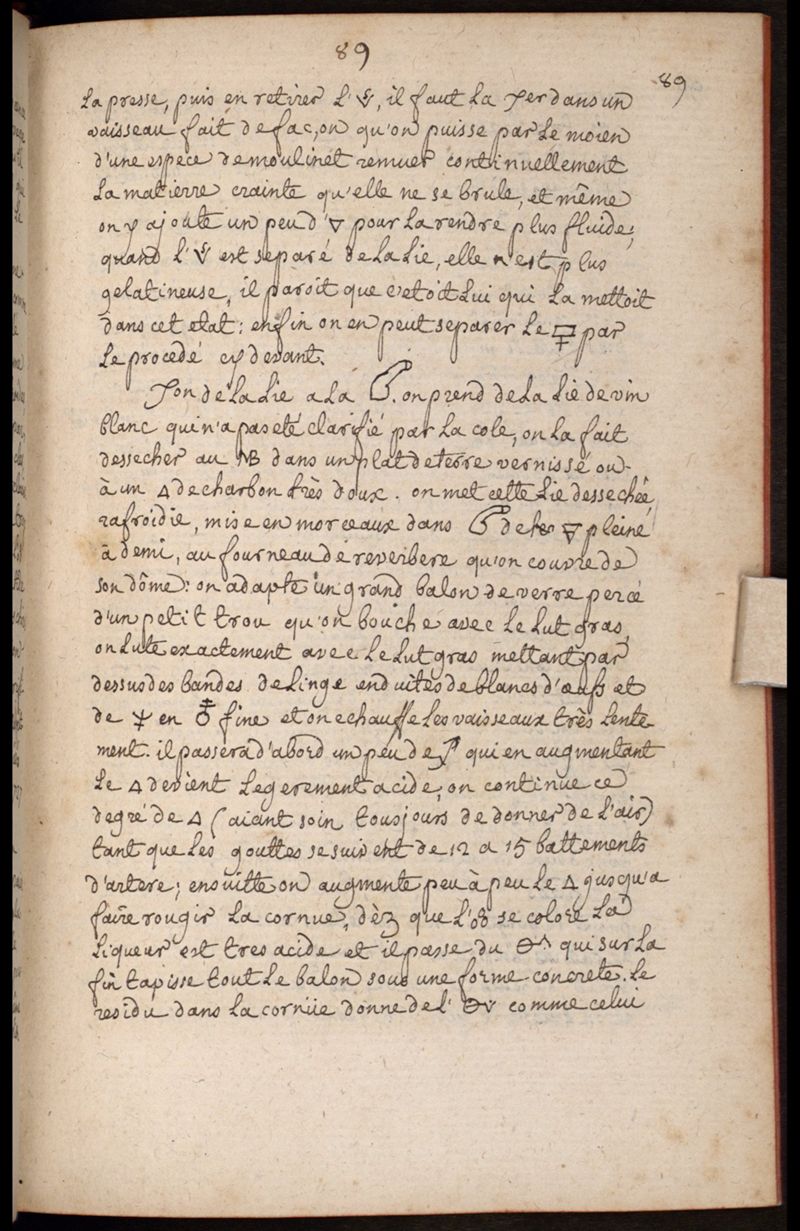 89
89
la presse, puis en retirer l' , il faut la dans un
vaisseau fait de façon qu'on puisse par le moien
d'une espece de moulinet remuer continuellement
la matierre crainte qu'elle ne se brule, et même
on y ajoute un peu d'🜄 pour la rendre plus fluide;
quand l' est separé de la lie, elle n'est plus
gelatineuse, il paroit que c'etoit lui qui la mettoit
dans cet etat: enfin on en peut separer le 🜿 par
le procedé cy devant.
de la lie a la . on prend de la lie de vin
blanc qui n'a pas eté clarifié par la cole, on la fait
dessecher au MB dans un plat de terre vernissé ou
à un 🜂 de charbon très doux. on met cette lie dessechée
rafroidie, mise en morceaux dans de 🜃 pleine
à demi, au fourneau de reverbere qu'on couvre de
son dôme: on adapte un grand balon de verre percé
d'un petit trou qu'on bouche avec le lut gras,
on lute exactement avec le lut gras mettant par
dessus des bandes de linge enduites de blancs d'œufs et
de en fine et on echauffe les vaisseaux très lente
ment. il passera d'abord un peu de qui en augmentant
le 🜂 devient legerement acide, on continue ce
degré de 🜂 (aiant soin tousjours de donner de l'air)
tant que les gouttes se suivent de 12 a 15 battements
d'artere; ensuitte on augmente peu à peu le 🜂 jusqu'a
faire rougir la cornue, dèz que l' se colore la
liqueur est tres acide et il passe du qui sur la
fin tapisse tout le balon sous une forme concrete. le
residu dans la cornüe donne de l' comme celui